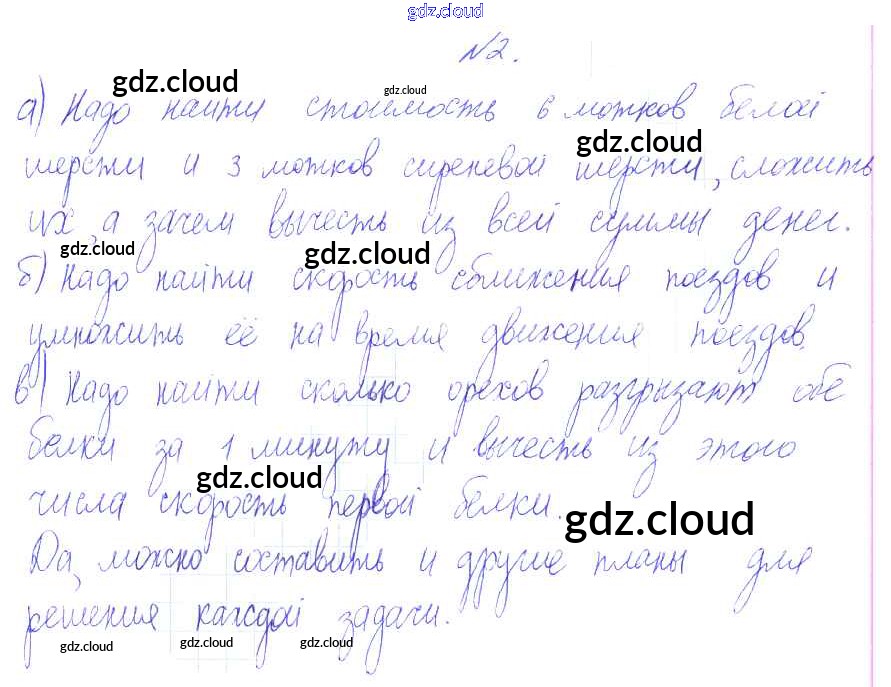 gdz.cloud
№2.
а) Надо найти стоимость 6 мотков белой
шерсти и 3 мотков сиреневой шерсти, сложить
их, а зачем вычесть из всей суммы денег.
б) Надо найти скорость сближения поездов и
умножить её на время движения поездов.
в) Надо найти сколько орехов разгрызают обе
белки за 1 минуту и вычесть из этого
числа скорость первой белки.
Да, можно составить и другие планы для
решения каждой задачи.
gdz.cloud
gdz.cloud
gdz.cloud
gdz.cloud
gdz.cloud
gdz.cloud
gdz.cloud
gdz.cloud
gdz.cloud
gdz.cloud